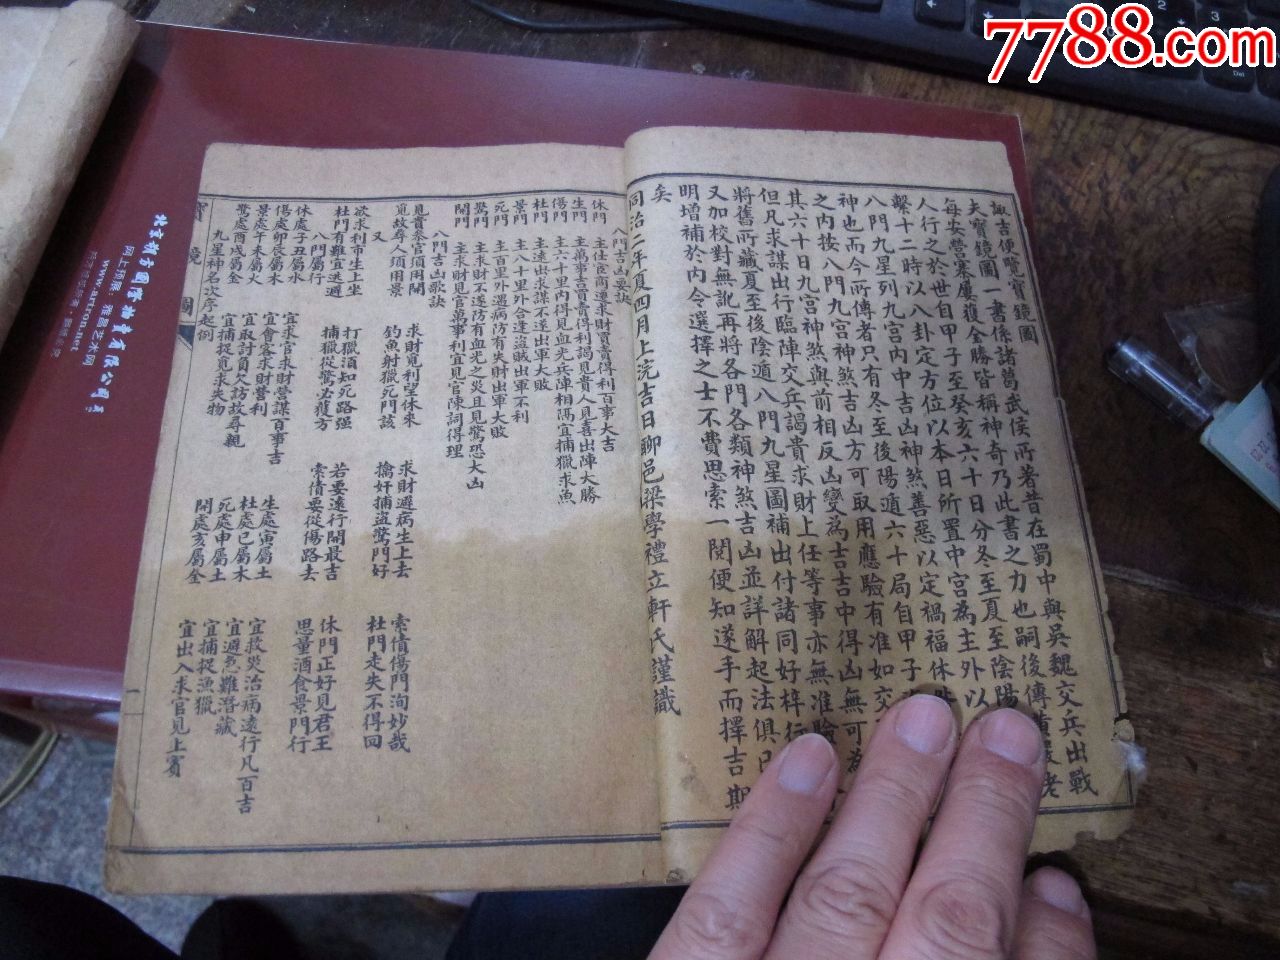 7788.com
諏吉便覽寶鏡圖
夫寶鏡圖一書係諸葛武侯所著昔在蜀中與吳魏交兵出戰
每安營寨屢獲全勝皆稱神奇乃此書之力也嗣後傳黃
老
人行之於世自甲子至癸亥六十日分冬至夏至陰陽
繫十二時以八卦定方位以本日所置中宮為主外以
八門九星列九宮內中吉凶神煞善惡以定禍福休
神也而今所傳者只有冬至後陽遁六十局自甲子
之內按八門九宮神煞吉凶方可取用應驗有准如交
其六十日九宮神煞與前相反凶變為吉吉中得凶無可為
但凡求謀出行臨陣交兵謁貴求財上任等事亦無准驗
將舊所藏夏至後陰遁八門九星圖補出付諸同好梓行
又加校對無訛再將各門各類神煞吉凶並詳解起法俱
明增補於內令選擇之士不費思索一閱便知遂手而擇吉期
矣
同治二年夏四月上浣吉日聊邑梁學禮立軒氏謹識
八門吉凶要訣
休門 主仕宦商遷求財賣買得利百事大吉
生門 主萬事吉賣買得利謁見貴人見喜出陣大勝
傷門 主六十里內得見血光兵陣相隔宜捕獵求魚
杜門 主遠出求謀不遂出軍大敗
景門 主八十里外合逢盜賊出軍不利
死門 主百里外遇病防有失財出軍大敗
驚門 主求財不遂防有血光之災且見驚恐大凶
開門 主求財見官萬事利宜見官陳詞得理
八門吉凶歌訣
見貴參官須用開 求財覓利望休來 求財避病生上去 索債傷門洵妙哉
覓故尋人須用景 釣魚射獵死門該 擒奸捕盜驚門好 杜門走失不得回
又
欲求利市生上坐 打獵須知死路強 若要遠行開最吉 休門正好見君王
杜門有難宜逃避 捕獵從驚必獲方 索債要從傷路去 思量酒食景門行
八門屬行
休處子丑屬水 宜求官求財營謀百事吉 生處寅屬土 宜救災治病遠行凡百吉
傷處卯辰屬木 宜會客求財營利 杜處巳屬木 宜避危難潛藏
景處午未屬火 宜取討負欠訪故尋親 死處申屬土 宜捕捉漁獵
驚處酉戌屬金 宜捕捉覓求失物 開處亥屬金 宜出入求官見上賓
九星神名次序起例
寶鏡圖
一
www.artron.net